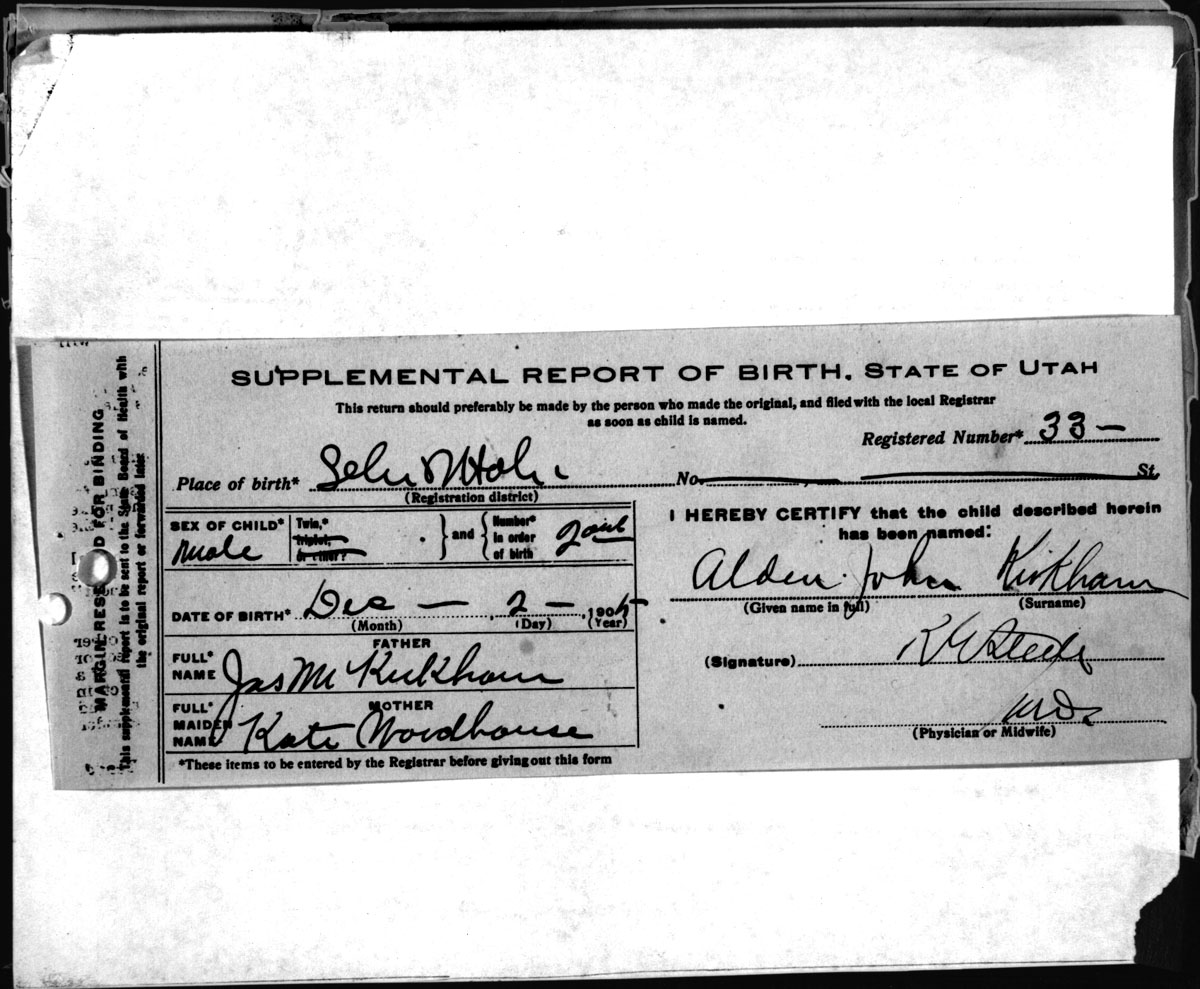 SUPPLEMENTAL REPORT OF BIRTH. STATE OF UTAH
This return should preferably be made by the person who made the original, and filed with the local Registrar
as soon as child is named.
Registered Number* 33 —
Place of birth*
No. St.
(Registration district)
SEX OF CHILD* Male
Twin,* triplet, or other?
and
Number* in order of birth
I HEREBY CERTIFY that the child described herein
has been named:
Alden John Kirkham
(Given name in full) (Surname)
DATE OF BIRTH* Dec — 2 — 190
(Month) (Day) (Year)
FATHER
FULL* NAME Jas M Kirkham
(Signature)
MOTHER
FULL* MAIDEN NAME Kate Woodhouse
(Physician or Midwife)
*These items to be entered by the Registrar before giving out this form
MARGIN RESE D FOR BINDING
This supplemental report is to be sent to the State Board of Health with
the original report or forwarded later